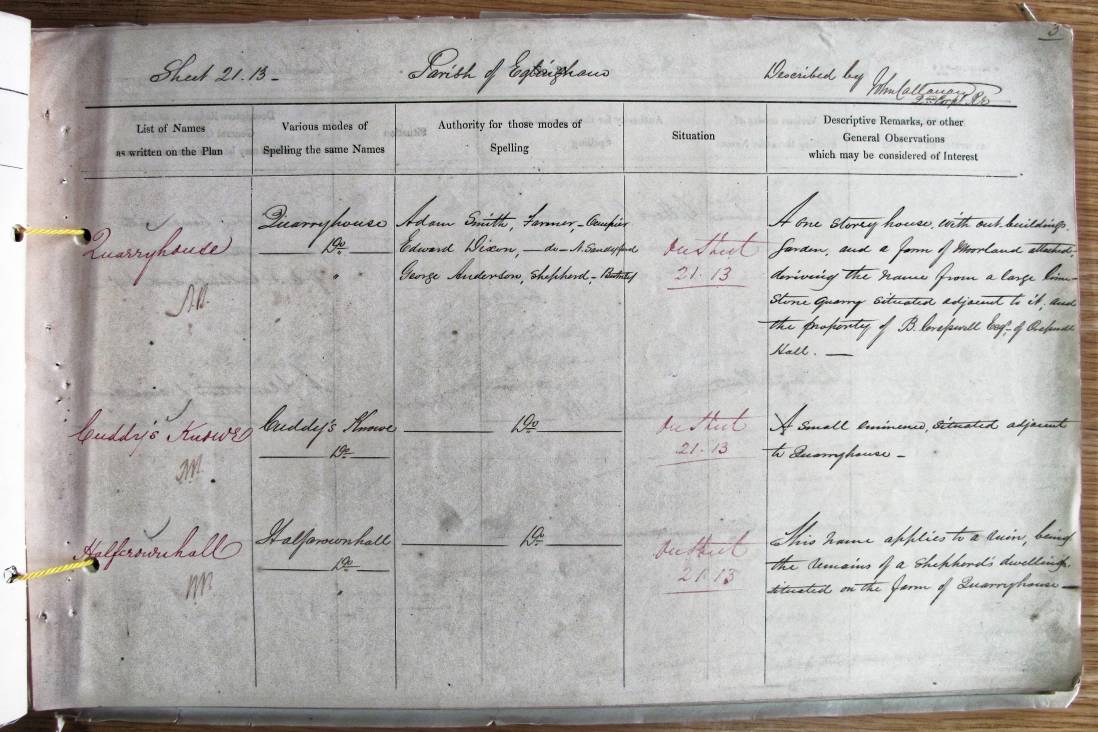 3
Sheet 21.13 -
Parish of Eglingham
Described by John Callanan
2nd Corpl. RE
List of Names
as written on the Plan
Various modes of
Spelling the same Names
Authority for those modes of
Spelling
Situation
Descriptive Remarks, or other
General Observations
which may be considered of Interest
Quarryhouse
Quarryhouse
Do
"
Adam Smith, Farmer - Occupier
Edward Dixon, - do - N. Sandyford
George Anderson, Shepherd -
On Sheet
21.13
A one storey house, with out-buildings,
Garden, and a farm of Moorland attached,
deriving the name from a large Lime-
stone quarry situated adjacent to it, and
the property of B. Creſswell Esqr. of Creſswell
Hall. —
Cuddy's Knowe
Cuddy's Knowe
Do
Do
On Sheet
21.13
A small eminence, situated adjacent
to Quarryhouse -
Halfcrownhall
Halfcrownhall
Do
"
Do
On Sheet
21.13
This name applies to a ruin, being
the remains of a Shepherd's dwelling,
situated on the farm of Quarryhouse —